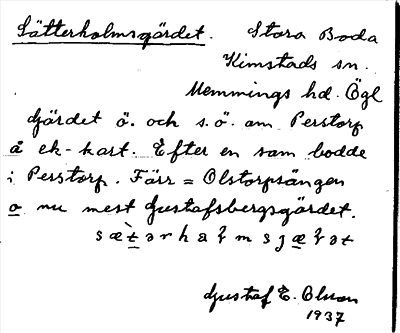 Sätterholmsgärdet. Stora Boda
Kimstads sn.
Memmings hd. Ögl
Gärdet ö. och s.ö. om Perstorp
å ek-kart. Efter en som bodde
i Perstorp. Förr = Olstorpsängen
o nu mest Gustafsbergsgärdet.
Gustaf E. Olsson
1937